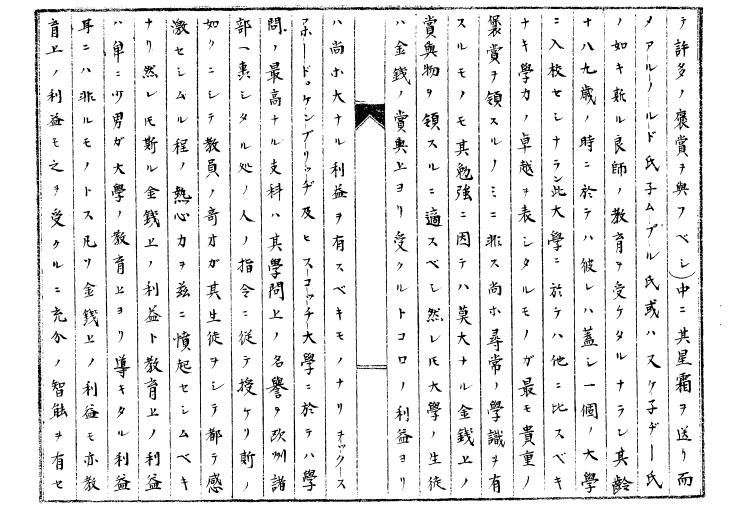 テ許多ノ褒賞ヲ與フベシ)中ニ其星霜ヲ送リ而
メアルノールド氏子ムブル氏或ハスケ子ヂー氏
ノ如キ新ル良師ノ教育ヲ受ケタルナラン其齢
十八九歳ノ時ニ於テハ彼レハ蓋シ一個ノ大學
ニ入校セシナラン此大學ニ於テハ他ニ比スベキ
ナキ學力ノ卓越ヲ表シタルモノガ最モ貴重ノ
褒賞ヲ領スルノミニ非ス尚ホ尋常ノ學識ヲ有
スルモノモ其勉強ニ因テハ莫大ナル金銭上ノ
賞與物ヲ領スルニ適スベシ然レ𪜈大學ノ生徒
ハ金銭ノ賞與上ヨリ受クルトコロノ利益ヨリ
ハ尚ホ大ナル利益ヲ有スベキモノナリオックス
ホードケンブリッヂ及ヒスーコッチ大學ニ於テハ學
問ノ最高ナル支科ハ其學問上ノ名譽ヲ欧洲諸
部ヘ轟シタル処ノ人ノ指令ニ従テ授ケリ斯ノ
如クニシテ教員ノ奇才ガ其生徒ヲシテ都テ感
激セシムル程ノ熱心力ヲ茲ニ憤起セシムベキ
ナリ然レ𪜈斯ル金銭上ノ利益ト教育上ノ利益
ハ単ニ少男ガ大學ノ教育上ヨリ導キタル利益
耳ニハ非ルモノトス凡ソ金銭上ノ利益モ亦教
育上ノ利益モ之ヲ受クルニ充分ノ智能ヲ有セ